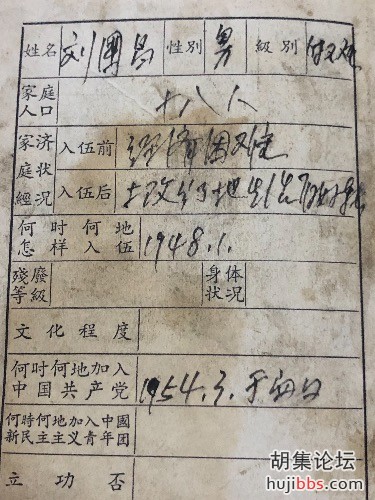 姓名 刘国昌 性别 男 級别
家庭人口 十八人
家庭經济状况 入伍前 经济困难
入伍后 土改分了地生活
何时何地怎样入伍 1948.1.
殘廢等級 身体状况
文化程度
何时何地加入中国共产党 1954.3.于
何時何地加入中國新民主主义青年团
立功否
胡集论坛
hujibbs.com